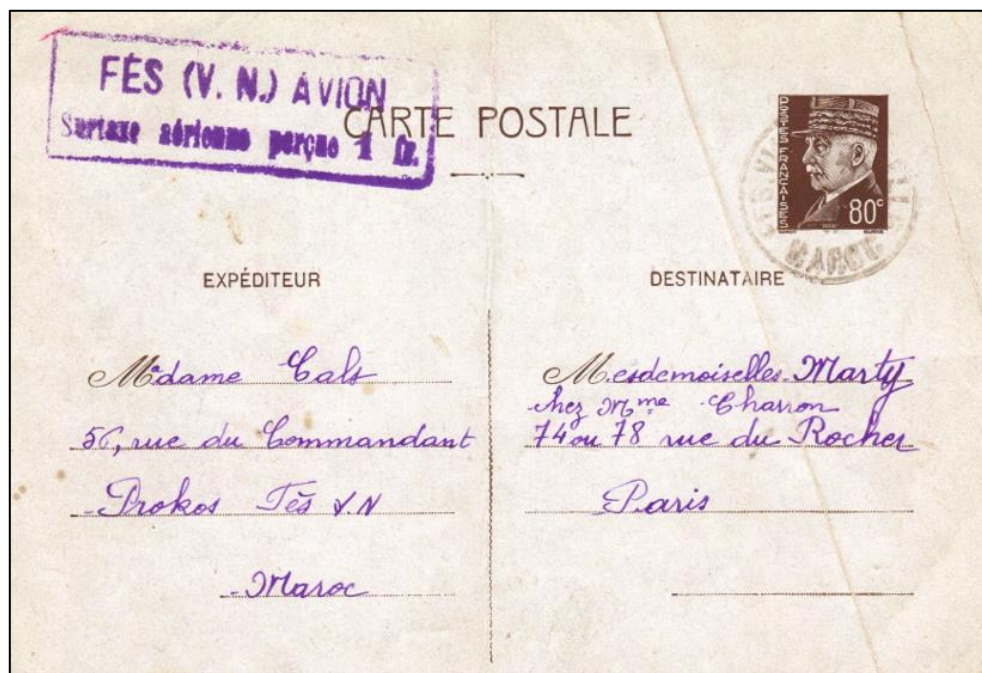 FÈS (V. N.) AVION
Surtaxe aérienne perçue 1 fr.
CARTE POSTALE
POSTES FRANÇAISES
80c
MAROC
EXPÉDITEUR
DESTINATAIRE
Madame Cals
56, rue du Commandant
Prokos Fès V.N
Maroc
Mesdemoiselles Marty
chez Mme Charron
74 ou 78 rue du Rocher
Paris